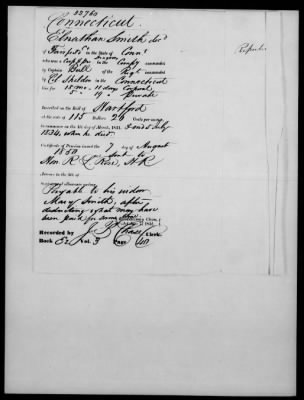 33760
Connecticut.
Elnathan Smith, decd
of Fairfield Co. in the State of Conn
who was a Corpl & Pri in the Compy commanded
by Captain Ball of the Regt commanded
by Col Sheldon in the Connecticut
line for 15 mo. 11 days Corporal
5 " 19 " Private
Inscribed on the Roll of Hartford
at the rate of 115 Dollars 26 Cents per annum,
to commence on the 4th day of March, 1831. & end 5 July
1834, when he died.
Certificate of Pension issued the 7 day of August
1850 & sent
Hon. R. L. Rose, H.R.
Payable to his widow
Mary Smith, after
deducting what may have
been paid for same
Recorded by J. Chase Clerk,
Book E2 Vol. 3 Page